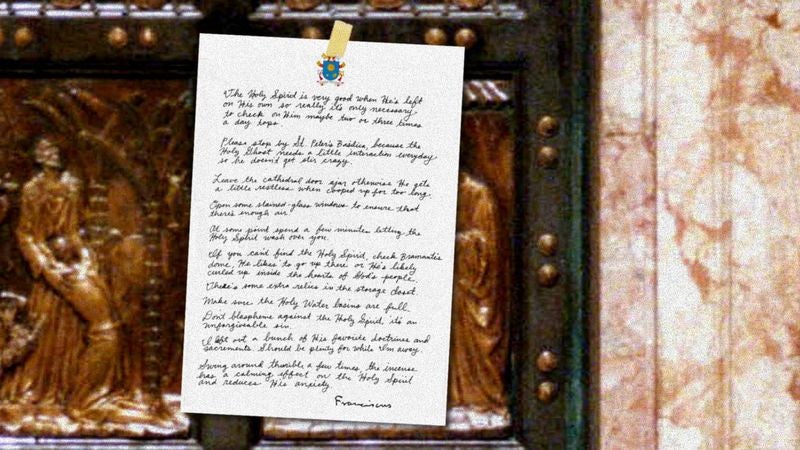 The Holy Spirit is very good when He's left
on His own so really it's only necessary
to check on Him maybe two or three times
a day tops.
Please stop by St. Peter's Basilica, because the
Holy Ghost needs a little interaction everyday
so he doesn't get stir crazy.
Leave the cathedral door ajar otherwise He gets
a little restless when cooped up for too long.
Open some stained-glass windows to ensure that
there's enough air.
At some point spend a few minutes letting the
Holy Spirit wash over you.
If you can't find the Holy Spirit, check Bramante's
dome, He likes to go up there or He's likely
curled up inside the hearts of God's people.
There's some extra relics in the storage closet.
Make sure the Holy Water basins are full.
Don't blaspheme against the Holy Spirit, it's an
unforgivable sin.
I left out a bunch of His favorite doctrines and
sacraments. Should be plenty for while I'm away.
Swing around thurible a few times, the incense
has a calming effect on the Holy Spirit
and reduces His anxiety.
Franciscus